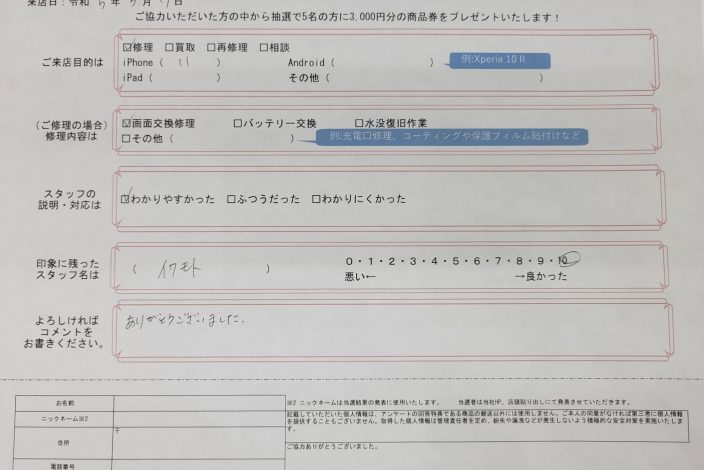 来店日：令和 5 年 5 月 日
ご協力いただいた方の中から抽選で5名の方に3,000円分の商品券をプレゼントいたします！
ご来店目的は
☑修理 □買取 □再修理 □相談
iPhone（ 11 ） Android（ ） 例:Xperia 10 II
iPad（ ） その他（ ）
（ご修理の場合）
修理内容は
☑画面交換修理 □バッテリー交換 □水没復旧作業
□その他（ ） 例:充電口修理、コーティングや保護フィルム貼付けなど
スタッフの
説明・対応は
☑わかりやすかった □ふつうだった □わかりにくかった
印象に残った
スタッフ名は
（ イワモト ）
0・1・2・3・4・5・6・7・8・9・10
悪い← →良かった
よろしければ
コメントを
お書きください。
ありがとうございました.
お名前
ニックネーム※2
住所
〒
電話番号
※2 ニックネームは当選結果の発表に使用いたします。 当選者は当社HP、店頭貼り出しにて発表させていただきます。
記載していただいた個人情報は、アンケートの回答特典である商品の郵送以外には使用しません。ご本人の同意がなければ第三者に個人情報
を提供することもございません。取得した個人情報は管理責任者を定め、紛失や漏洩などが発生しないよう積極的な安全対策を実施いたしま
す。
ご協力ありがとうございました。